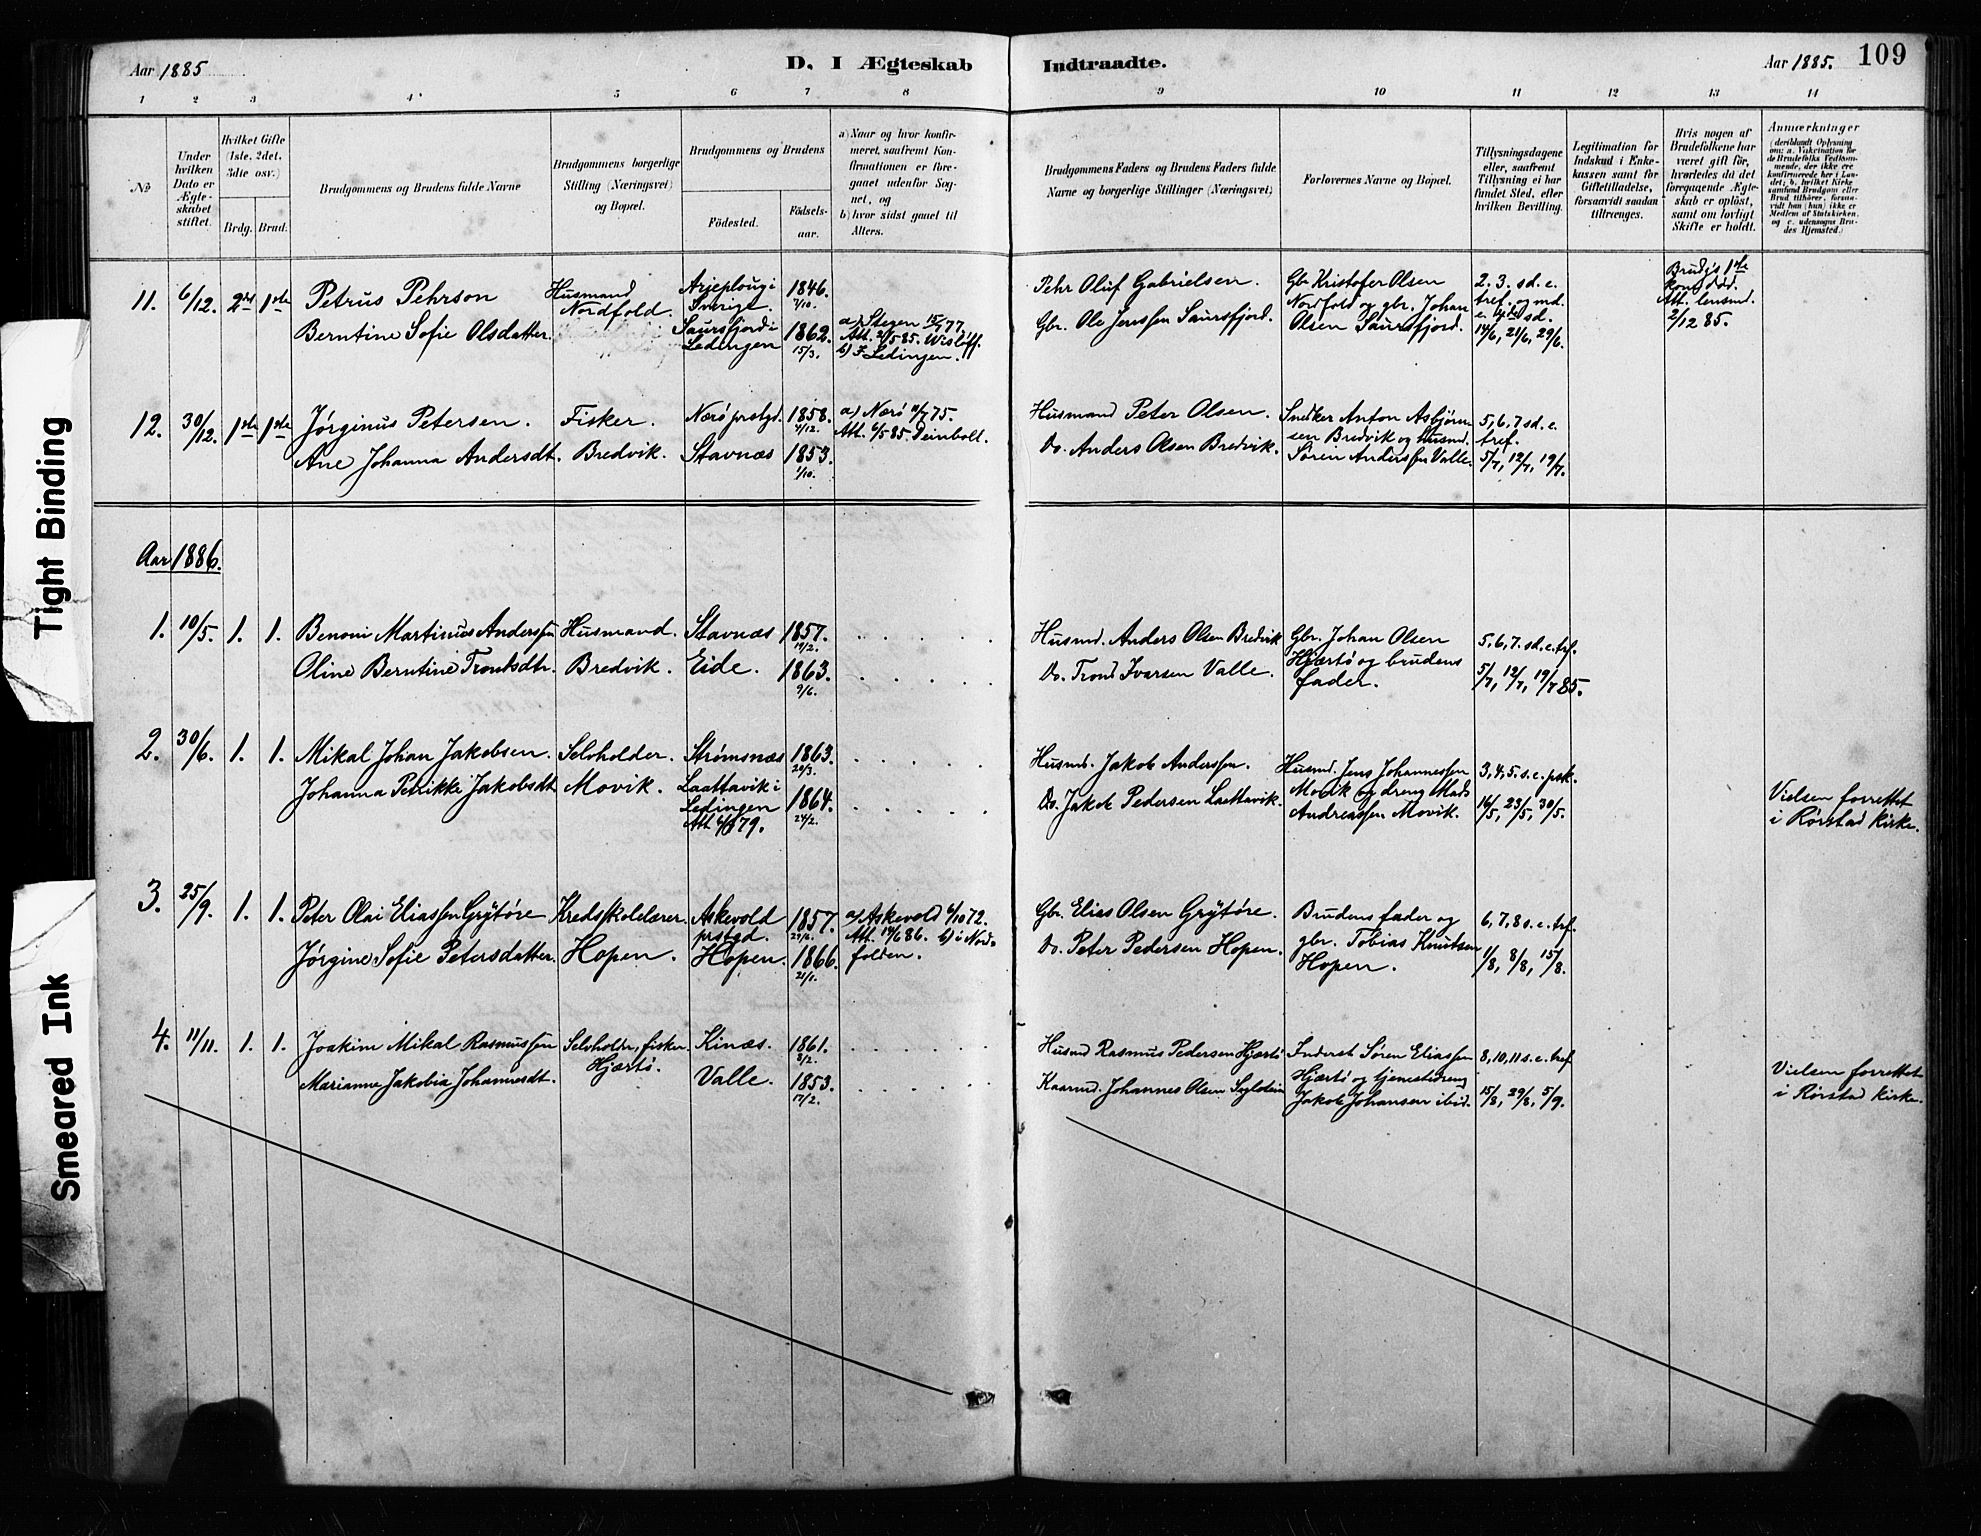 Aar 1885
D. I Ægteskab Indtraadte.
Aar 1885. 109
1 2 3 4 5 6 7 8 9 10 11 12 13 14
No
Under hvilken Dato er Ægteskabet stiftet.
Hvilket Gifte (1ste, 2det, 3dte osv.)
Brdg. Brud.
Brudgommens og Brudens fulde Navne
Brudgommens borgerlige Stilling (Næringsvei) og Bopæl.
Brudgommens og Brudens
Fødested.
Fødselsaar.
a) Naar og hvor konfirmeret, saafremt Konfirmationen er foregaaet udenfor Sognet, og
b) hvor sidst gaaet til Alters.
Brudgommens Faders og Brudens Faders fulde Navne og borgerlige Stillinger (Næringsvei)
Forlovernes Navne og Bopæl.
Tillysningsdagene eller, saafremt Tillysning ei har fundet Sted, efter hvilken Bevilling.
Legitimation for Indskud i Enkekassen samt for Giftetilladelse, forsaavidt saadan tiltrænges.
Hvis nogen af Brudefolkene har været gift før, hvorledes da det foregaaende Ægteskab er opløst, samt om lovligt Skifte er holdt.
Anmærkninger (deriblandt Oplysning om: a. Vakcination for de Brudefolks Vedkommende, der ikke ere konfirmerede her i Landet; b. hvilket Kirkesamfund Brudgom eller Brud tilhører, forsaavidt han (hun) ikke er Medlem af Statskirken, og c. udensogns Brudes Hjemsted.)
11. 6/12. 2det 1ste
Petrus Pehrson
Berntine Sofie Olsdatter.
Husmand
Nordfold.
Arjeploug i
Sverige.
Saursfjord i
Lødingen
1846.
7/10.
1862.
15/3.
a) Stegen 15/7 77.
Att. 2/5 85. Wisløff.
b) Lødingen.
Pehr Oluf Gabrielsen.
Gbr. Ole Jenssen Saursfjord.
Gbr. Kristofer Olsen
Nordfold og gbr. Johan
Olsen Saursfjord.
2. 3. sd. e.
tref. og
14/6, 21/6, 29/6.
Brudg's 1ste
kone død.
Att. lensmd.
2/12 85.
12. 30/12. 1ste 1ste
Jørginus Petersen.
Ane Johanna Andersdt.
Fisker.
Bredvik.
Nærø prstgd.
Stavnæs
1858.
4/12.
1853.
1/10.
a) Nærø 11/7 75.
Att. 6/5 85.
Husmand Peter Olsen.
Do. Anders Olsen Bredvik.
Sndker Anton Asbjørnsen
Bredvik og Husmd.
Søren Anderssen Valle.
5, 6, 7 sd. e.
tref.
5/7, 12/7, 19/7.
Aar 1886.
1. 10/5. 1. 1.
Benoni Martinus Anderssen
Oline Berntine Trondsdtr.
Husmand.
Bredvik.
Stavnæs
Eide.
1857.
19/2.
1863.
9/6.
Husmd. Anders Olsen Bredvik
Do. Trond Ivarsen Valle.
Gbr. Johan Olsen
Hjærtø og brudens
fader.
5, 6, 7. sd. e. trf.
5/7, 12/7, 19/7 85.
2. 30/6. 1. 1.
Mikal Johan Jakobsen.
Johanna Petrikke Jakobsdt.
Selvholder.
Movik.
Strømsnæs
Laattavik i
Lødingen
1863.
20/3.
1864.
24/2.
Husmd. Jakob Anderssen.
Do. Jakob Pedersen Laattavik.
Husmd. Jens Johannessen
Movik og dreng Mads
Andreassen Movik.
3, 4, 5. s. e. psk.
16/5, 23/5, 30/5.
Vielsen forrettet
i Rørstad kirke.
3. 25/9. 1. 1.
Peter Olai Eliassen Grytøre
Jørgine Sofie Petersdatter.
Kredsskolelærer.
Hopen.
Askevold
prstgd.
Hopen.
1857.
1866.
21/1.
a) Askevold 6/10 72.
Att. 14/6 86. b) i Nordfolden.
Gbr. Elias Olsen Grytøre.
Do. Peter Pedersen Hopen.
Brudens fader og
gbr. Tobias Knutsen
Hopen.
6, 7, 8 s. e. trf.
1/8, 8/8, 15/8.
4. 11/11. 1. 1.
Joakim Mikal Rasmussen
Marianne Jakobia Johannesdt.
Selvholder, fisker
Hjærtø.
Kinæs.
Valle.
1861.
8/2.
1853.
17/2.
Husmd Rasmus Pedersen Hjærtø
Kaarmd. Johannes Olsen
Inderst Søren Eliassen
Hjærtø og tjenestedreng
Jakob Johansen ibid.
8, 10, 11 s. e. tref
15/8, 29/8, 5/9.
Vielsen forrettet
i Rørstad kirke.
Tight Binding
Smeared Ink